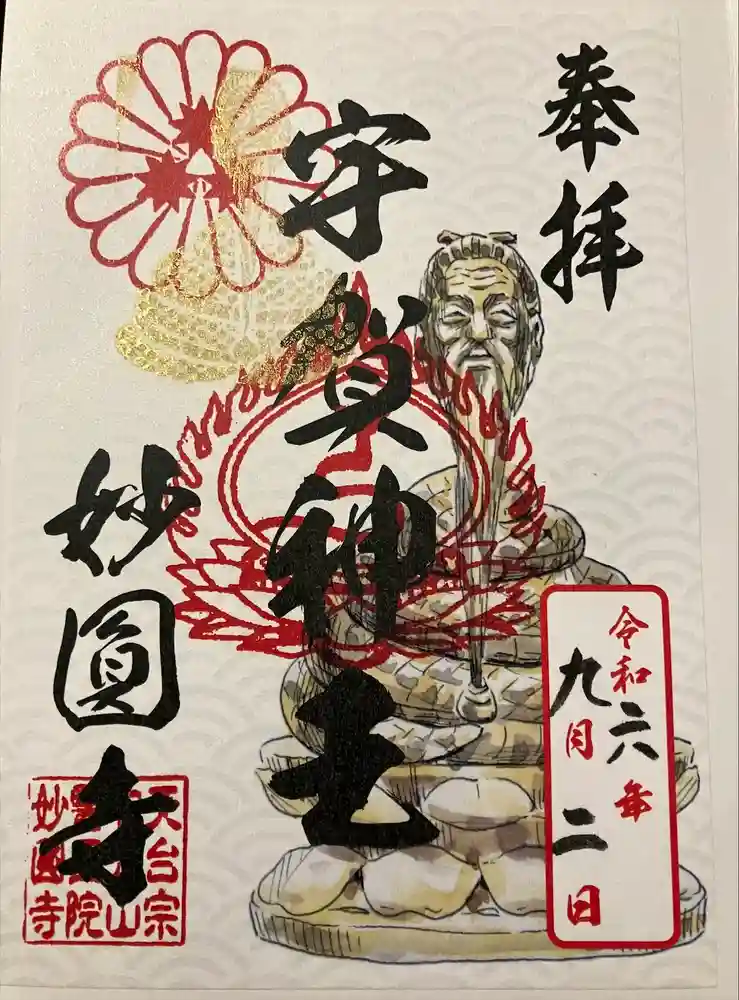 奉拝
宇賀神王
令和六年
九月二日
妙圓寺
天台宗
山
院
妙圓寺